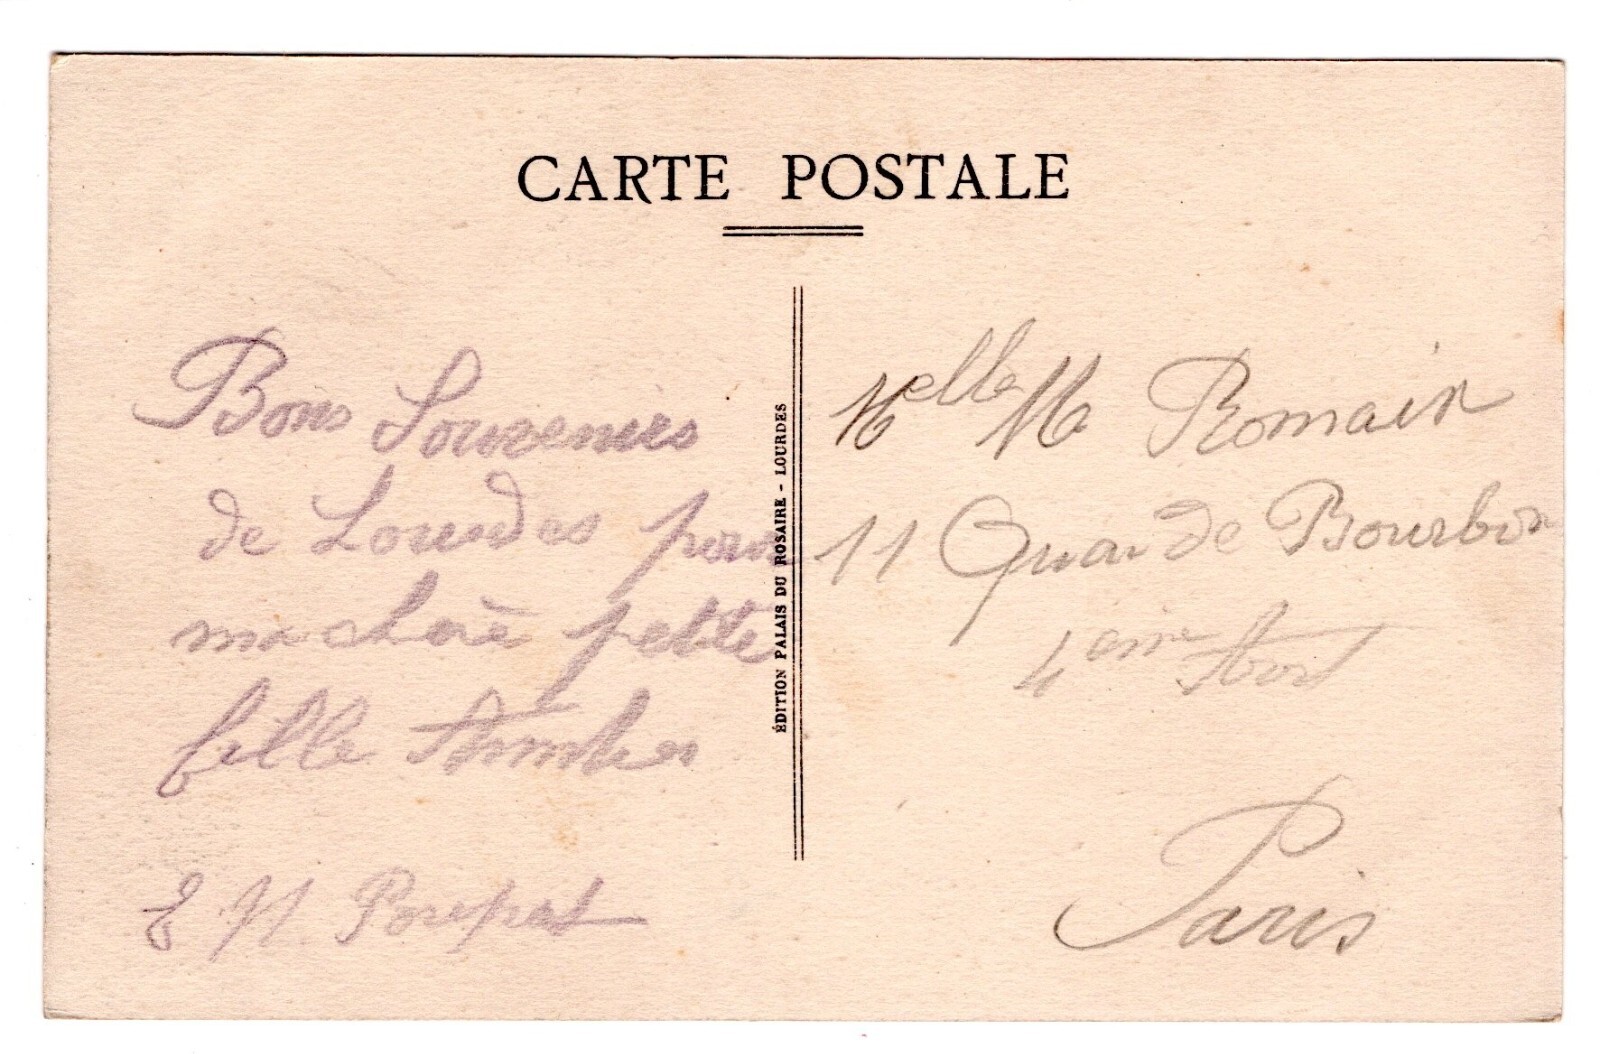 CARTE POSTALE
Bons Souvenirs
de Lourdes pour
ma chère petite
fille
E M Poupat
ÉDITION PALAIS DU ROSAIRE - LOURDES
Melle M Romain
11 Quai de Bourbon
4eme
Paris